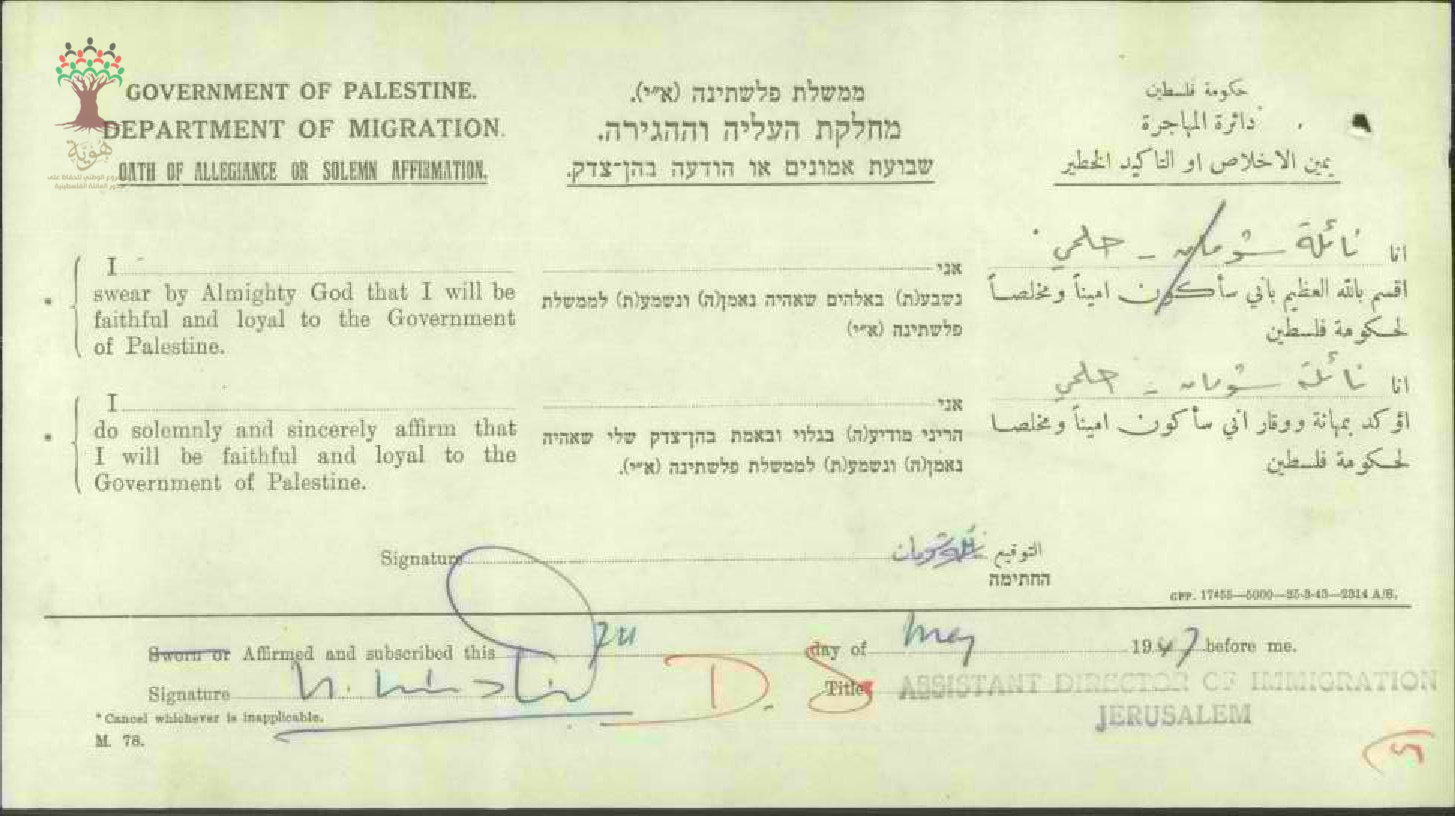 GOVERNMENT OF PALESTINE.
DEPARTMENT OF MIGRATION.
OATH OF ALLEGIANCE OR SOLEMN AFFIRMATION.
ממשלת פלשתינה (א״י).
מחלקת העליה וההגירה.
שבועת אמונים או הודעה בהן־צדק.
حكومة فلسطين
دائرة المهاجرة
يمين الاخلاص او التاكيد الخطير
هوية
I
swear by Almighty God that I will be
faithful and loyal to the Government
of Palestine.
אני
נשבע(ת) באלהים שאהיה נאמן(ה) ונשמע(ת) לממשלת
פלשתינה (א״י)
انا نائلة شومان - حلمي
اقسم بالله العظيم باني سأكون اميناً ومخلصاً
لحكومة فلسطين
* I
do solemnly and sincerely affirm that
I will be faithful and loyal to the
Government of Palestine.
אני
הריני מודיע(ה) בגלוי ובאמת בהן־צדק שלי שאהיה
נאמן(ה) ונשמע(ת) לממשלת פלשתינה (א״י).
انا نائلة شومان - حلمي
اؤكد بمهانة ووقار اني سأكون اميناً ومخلصا
لحكومة فلسطين
Signature نائلة شومان التوقيع
החתימה
GPP. 17455—5000—25-3-43—2314 A/S.
Sworn or Affirmed and subscribed this day of May 1947 before me.
Signature D. S Title ASSISTANT DIRECTOR OF IMMIGRATION
JERUSALEM
* Cancel whichever is inapplicable.
M. 78.